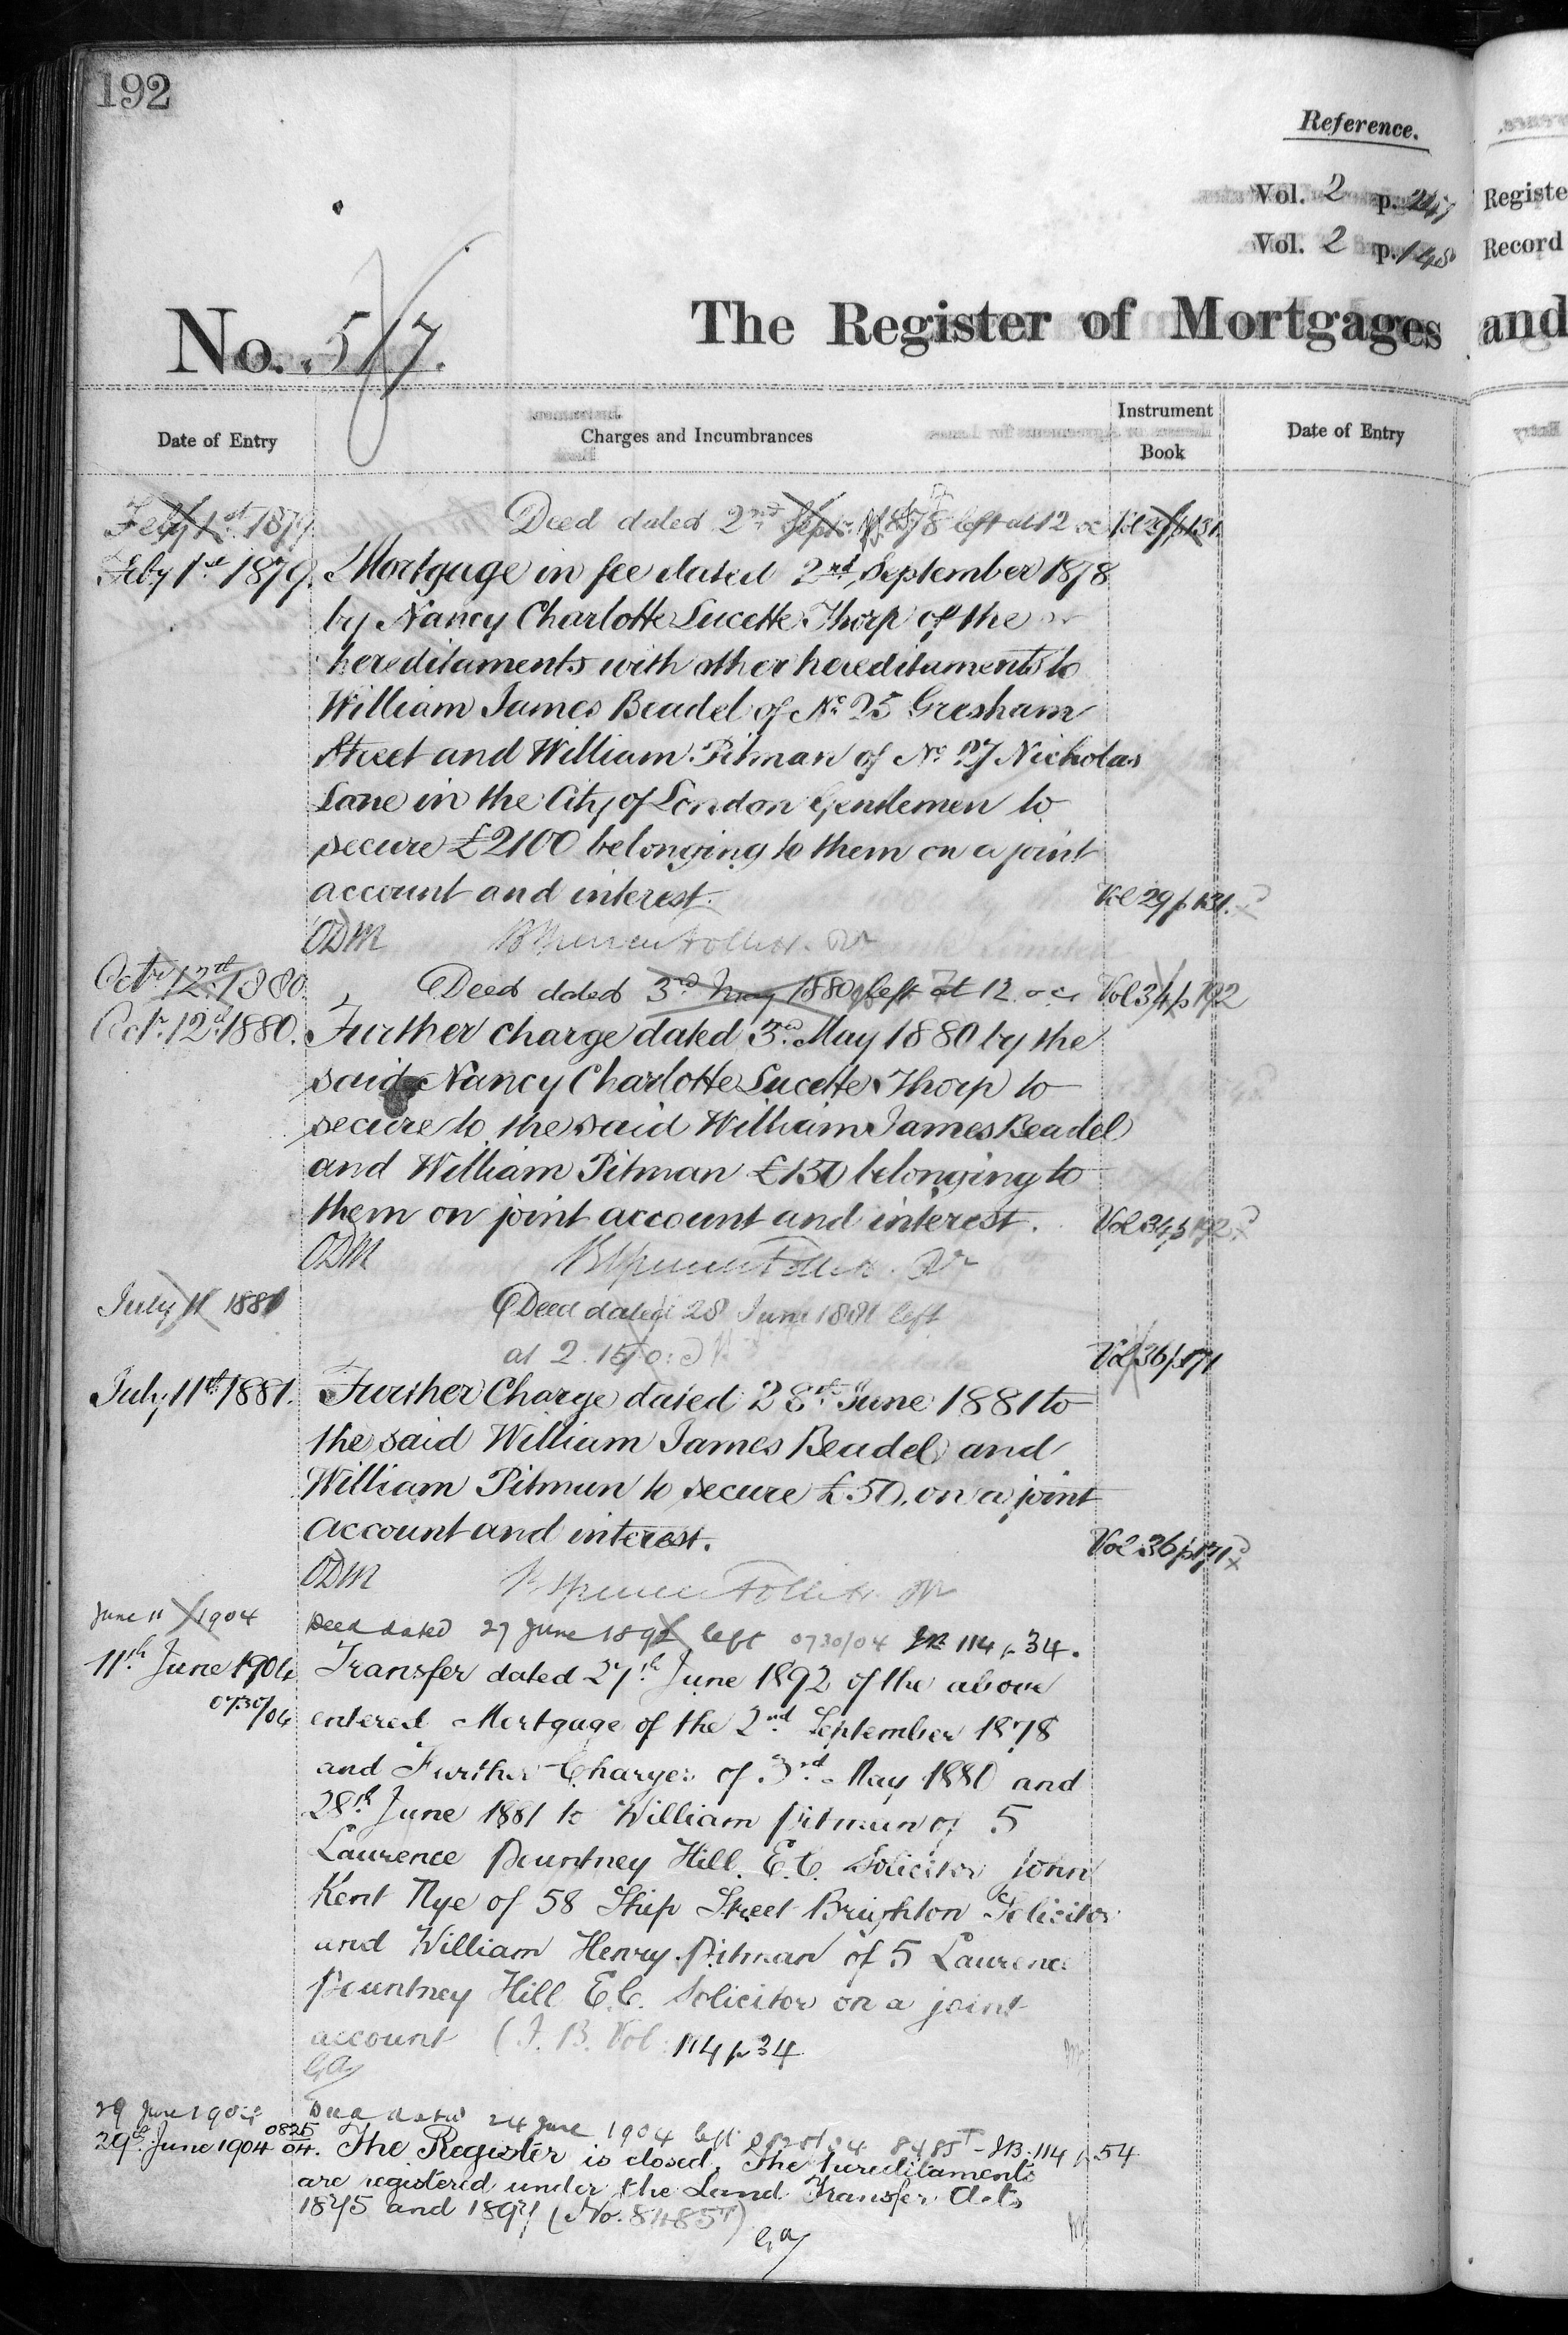 192
Reference.
Vol. 2 p. 247 Registe
Vol. 2 p. 148 Record
No. 517. The Register of Mortgages and
Date of Entry Charges and Incumbrances Instrument Book Date of Entry
Feby 1st 1879 Deed dated 2nd Septr 1878 left at 12 oc Vol 29 p 131
Feby 1st 1879. Mortgage in fee dated 2nd September 1878
by Nancy Charlotte Lucette Thorp of the
hereditaments with other hereditaments to
William James Beadel of No 25 Gresham
Street and William Pitman of No 27 Nicholas
Lane in the City of London Gentlemen to
secure £2100 belonging to them on a joint
account and interest. Vol 29 p 131.
ODM
Octr 12th 1880 Deed dated 3rd May 1880 left at 12 oc Vol 34 p 192
Octr 12th 1880. Further charge dated 3rd May 1880 by the
said Nancy Charlotte Lucette Thorp to
secure to the said William James Beadel
and William Pitman £150 belonging to
them on joint account and interest. Vol 34 p 192
ODM
July 11 1881 Deed dated 28 June 1881 left
at 2.15 o:c Vol 36 p 171
July 11th 1881. Further Charge dated 28th June 1881 to
the said William James Beadel and
William Pitman to secure £50, on a joint
account and interest. Vol 36 p 171
ODM
June 11 1904 Deed dated 27 June 1892 left 0730/04 114 p 34.
11th June 1904 Transfer dated 27th June 1892 of the above
0730/04 entered Mortgage of the 2nd September 1878
and Further Charges of 3rd May 1880 and
28th June 1881 to William Pitman of 5
Laurence Pountney Hill E.C. Solicitor John
Kent Nye of 58 Ship Street Brighton Solicitor
and William Henry Pitman of 5 Laurence
Pountney Hill E.C. Solicitor on a joint
account (I. B. Vol: 114 p 34
29 June 1904 Deed dated 24 June 1904 left 0825/04 8485T - IB. 114 p 54
29th June 1904 0825/04. The Register is closed. The hereditaments
are registered under the Land Transfer Acts
1875 and 1897 (No. 8485T)